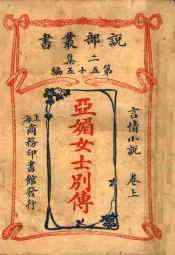 說部叢書
二集
第五十五編
言情小說 卷上
亞媚女士別傳
上海商務印書館發行